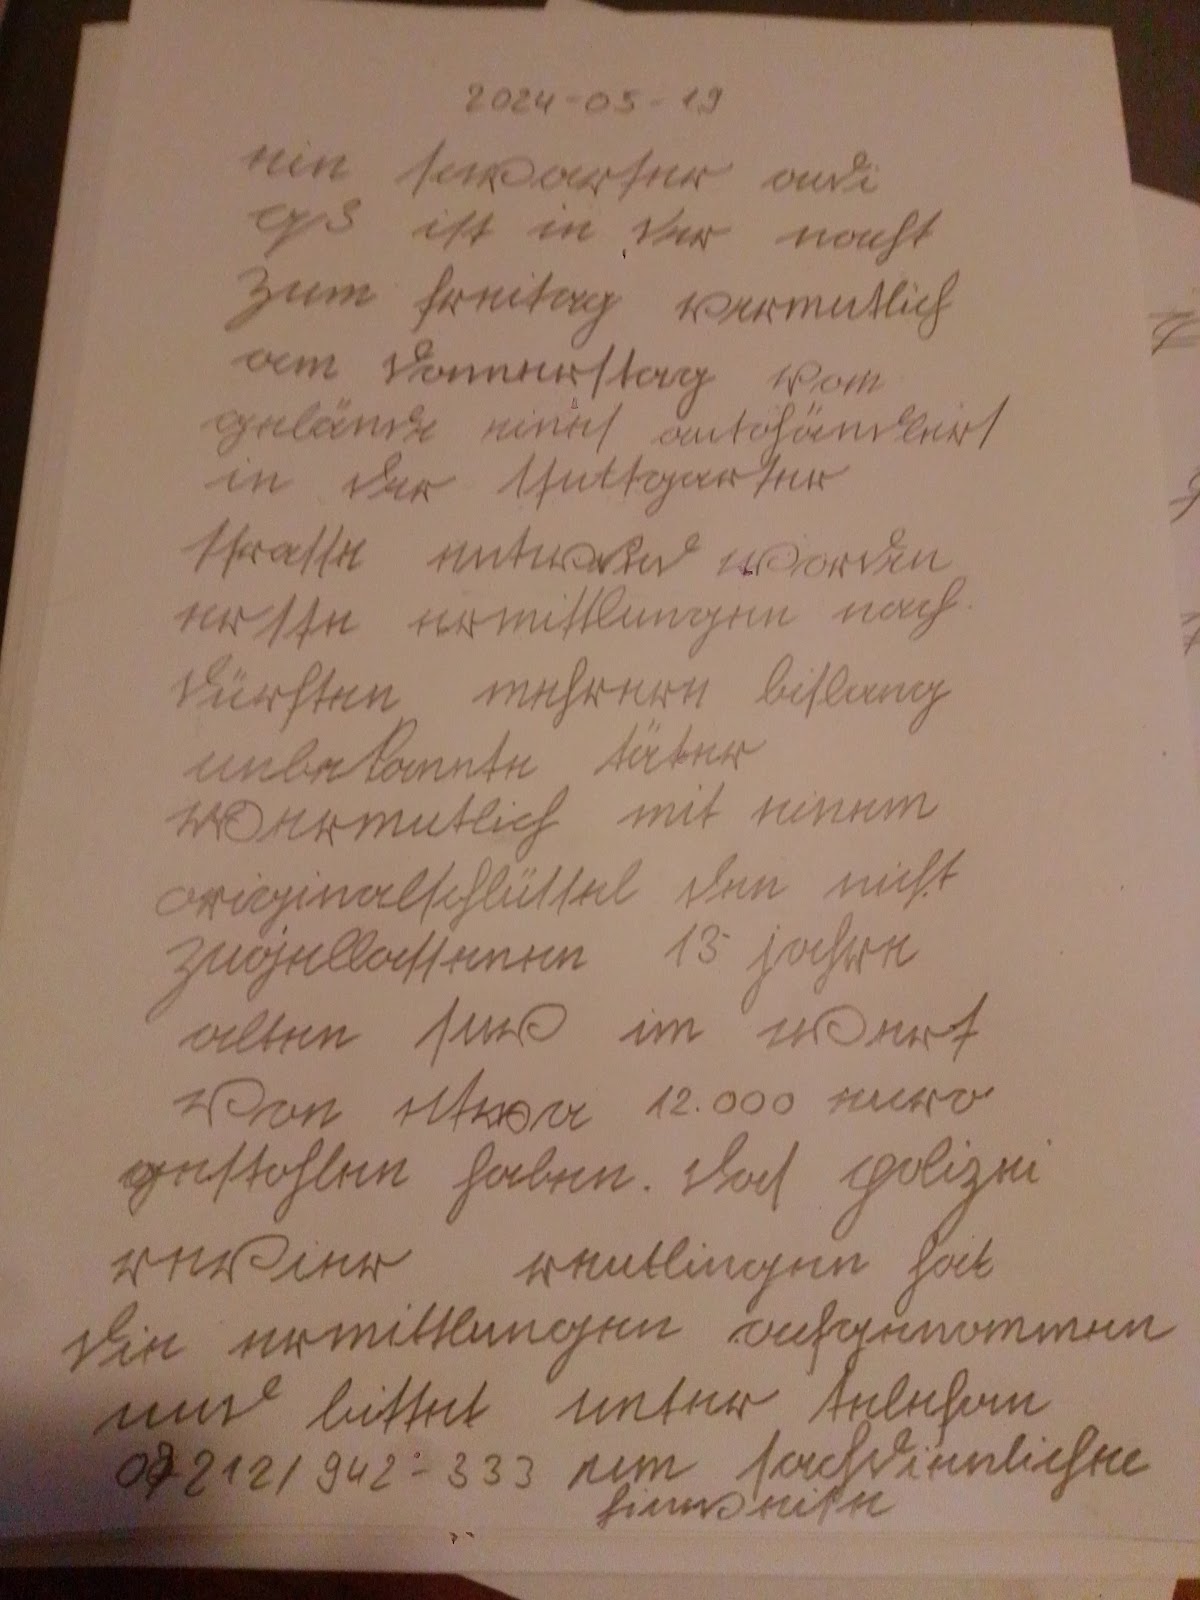 2024-05-19
ein schwarzer audi
q3 ist in der nacht
zum freitag vermutlich
am donnerstag vom
gelände eines autohändlers
in der stuttgarter
strasse entwend worden
erste ermittlungen nach
dürften mehrere bislang
unbekannte täter
vermutlich mit einem
originalschlüssel den nicht
zugellassenen 13 jahre
alten suv im wert
von etwa 12.000 euro
gestohlen haben. das polizei
revier reutlingen hat
die ermittlungen aufgenommen
und bittet unter telefon
07212/942-333 um sachdienlichee
hinweise